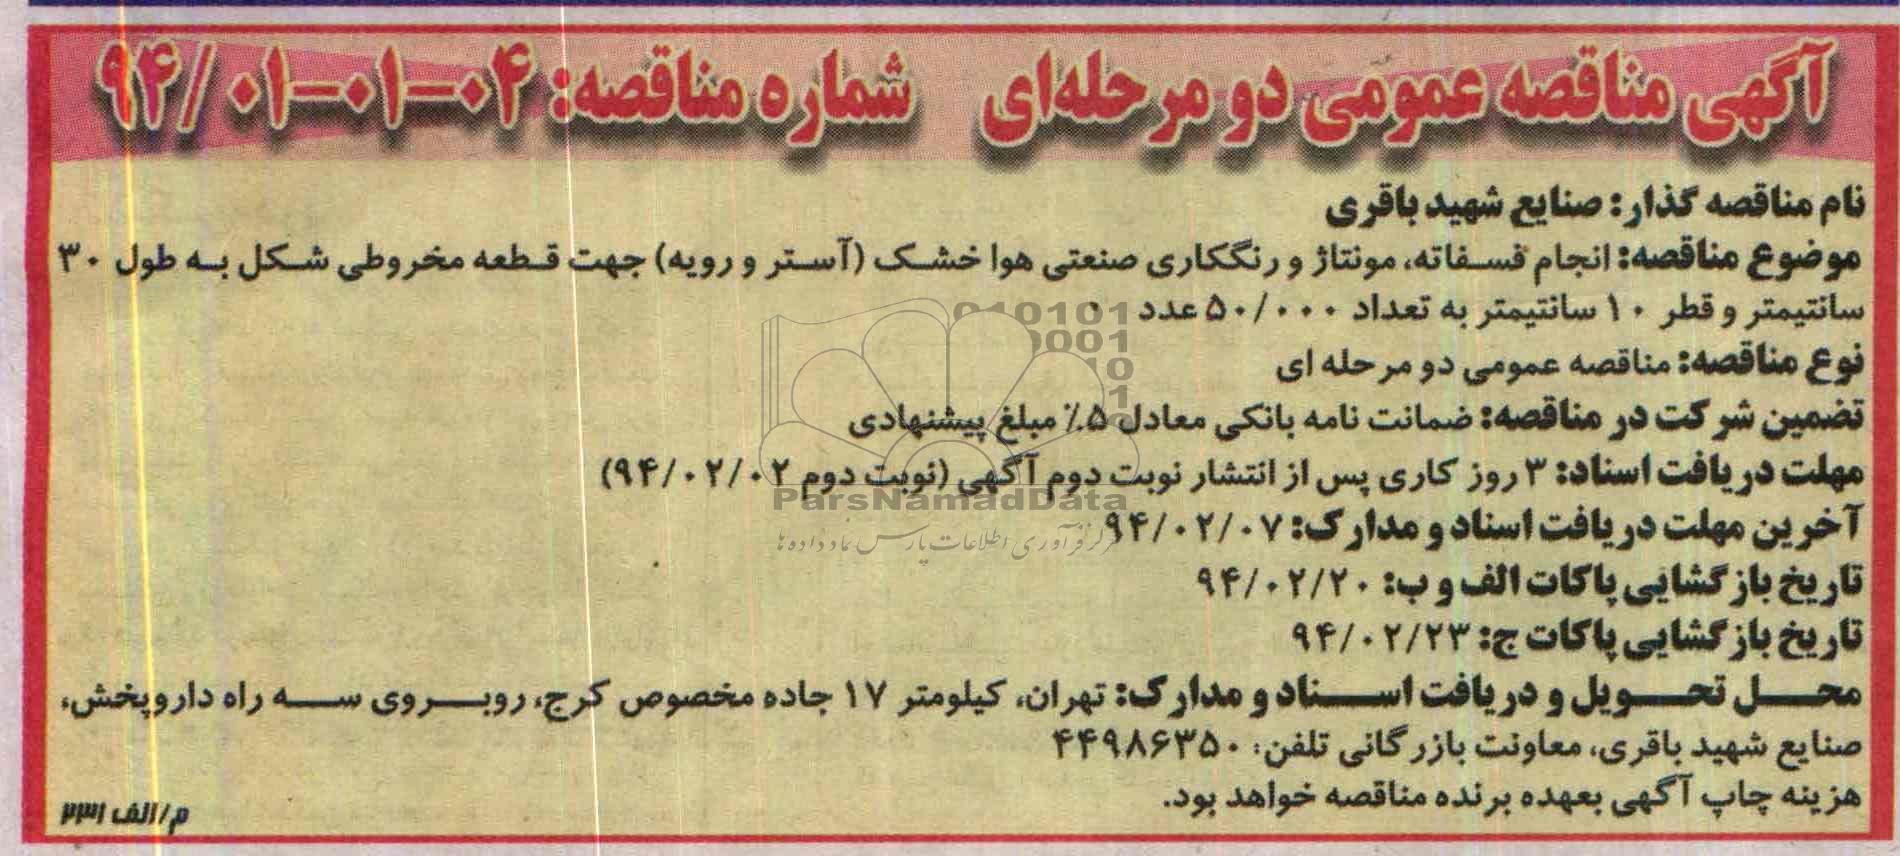 آگهی مناقصه عمومی دو مرحله‌ای شماره مناقصه: ۰۴-۰۱-۰۱ /۹۴
نام مناقصه گذار: صنایع شهید باقری
موضوع مناقصه: انجام فسفاته، مونتاژ و رنگکاری صنعتی هوا خشک (آستر و رویه) جهت قطعه مخروطی شکل به طول ۳۰
سانتیمتر و قطر ۱۰ سانتیمتر به تعداد ۵۰/۰۰۰ عدد
نوع مناقصه: مناقصه عمومی دو مرحله ای
تضمین شرکت در مناقصه: ضمانت نامه بانکی معادل ۵٪ مبلغ پیشنهادی
مهلت دریافت اسناد: ۳ روز کاری پس از انتشار نوبت دوم آگهی (نوبت دوم ۹۴/۰۲/۰۲)
آخرین مهلت دریافت اسناد و مدارک: ۹۴/۰۲/۰۷
تاریخ بازگشایی پاکات الف و ب: ۹۴/۰۲/۲۰
تاریخ بازگشایی پاکات ج: ۹۴/۰۲/۲۳
محل تحویل و دریافت اسناد و مدارک: تهران، کیلومتر ۱۷ جاده مخصوص کرج، روبروی سه راه داروپخش،
صنایع شهید باقری، معاونت بازرگانی تلفن: ۴۴۹۸۶۳۵۰
هزینه چاپ آگهی بعهده برنده مناقصه خواهد بود.
م/الف ۲۳۱
010101
0001
10
1
ParsNamadData
مرکز فرآوری اطلاعات پارس نماد داده ها